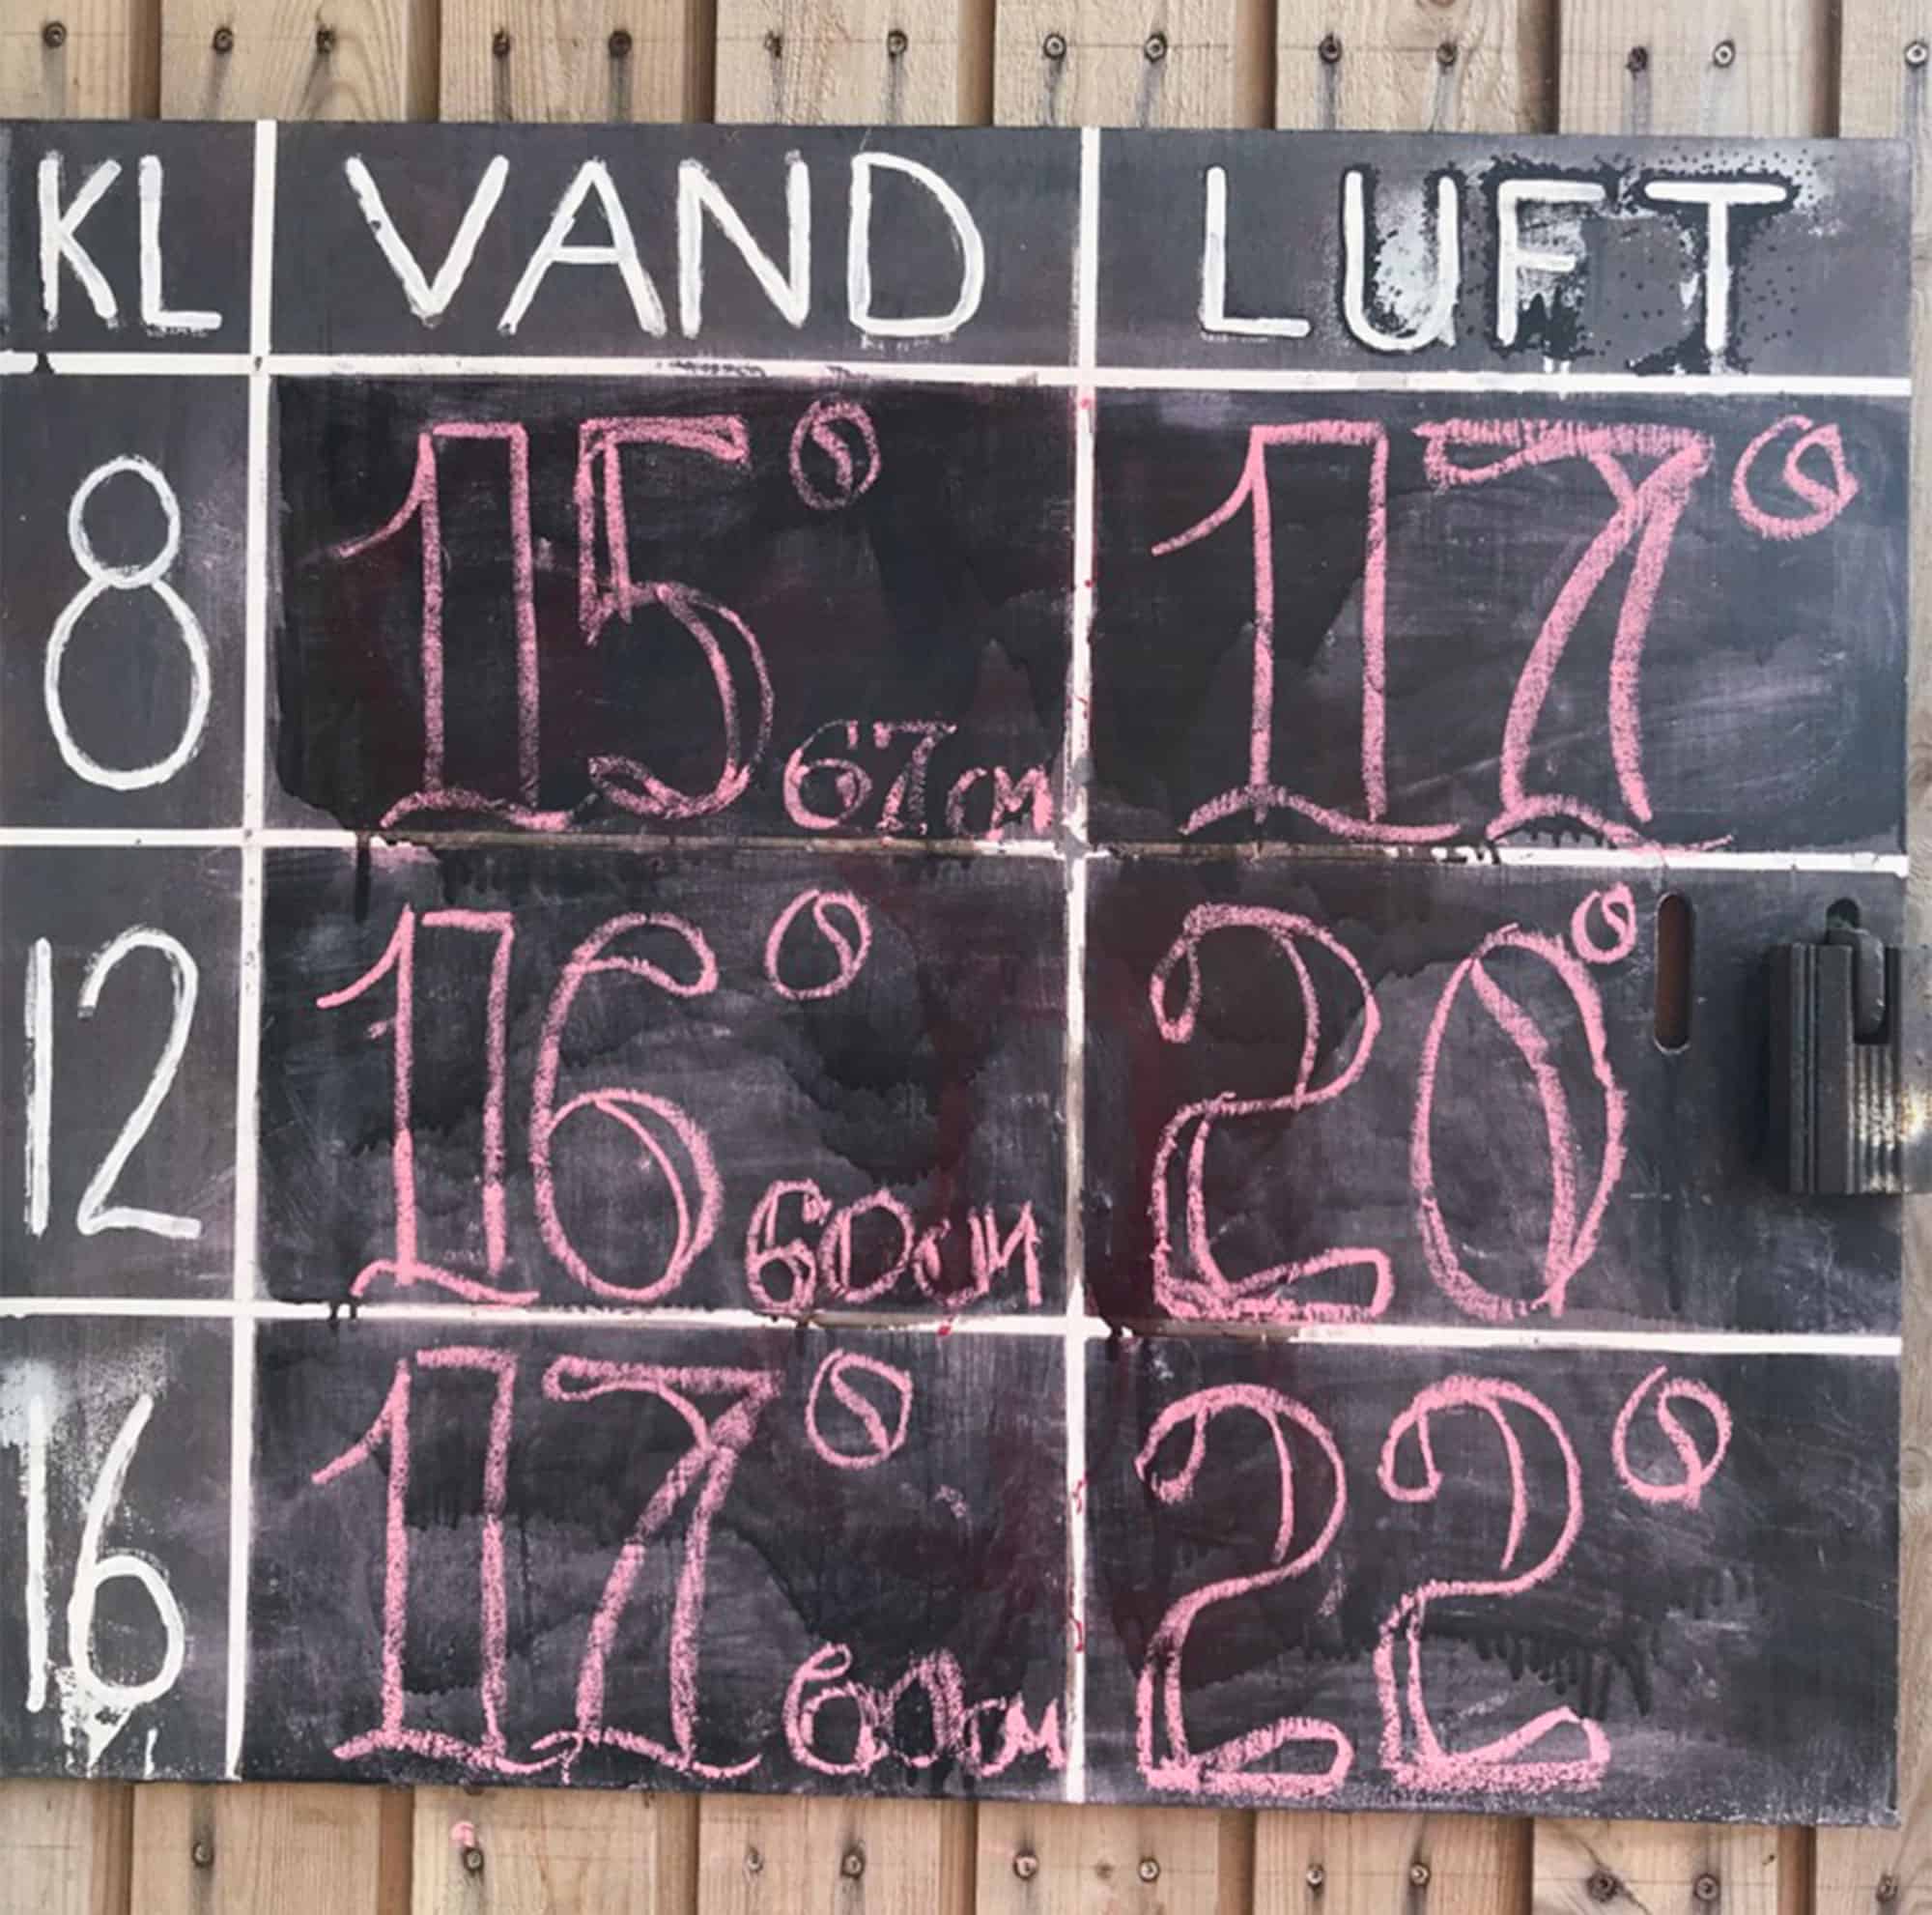 KL VAND LUFT
8 15° 17°
67cm
12 16° 20°
60cm
16 17° 22°
60cm